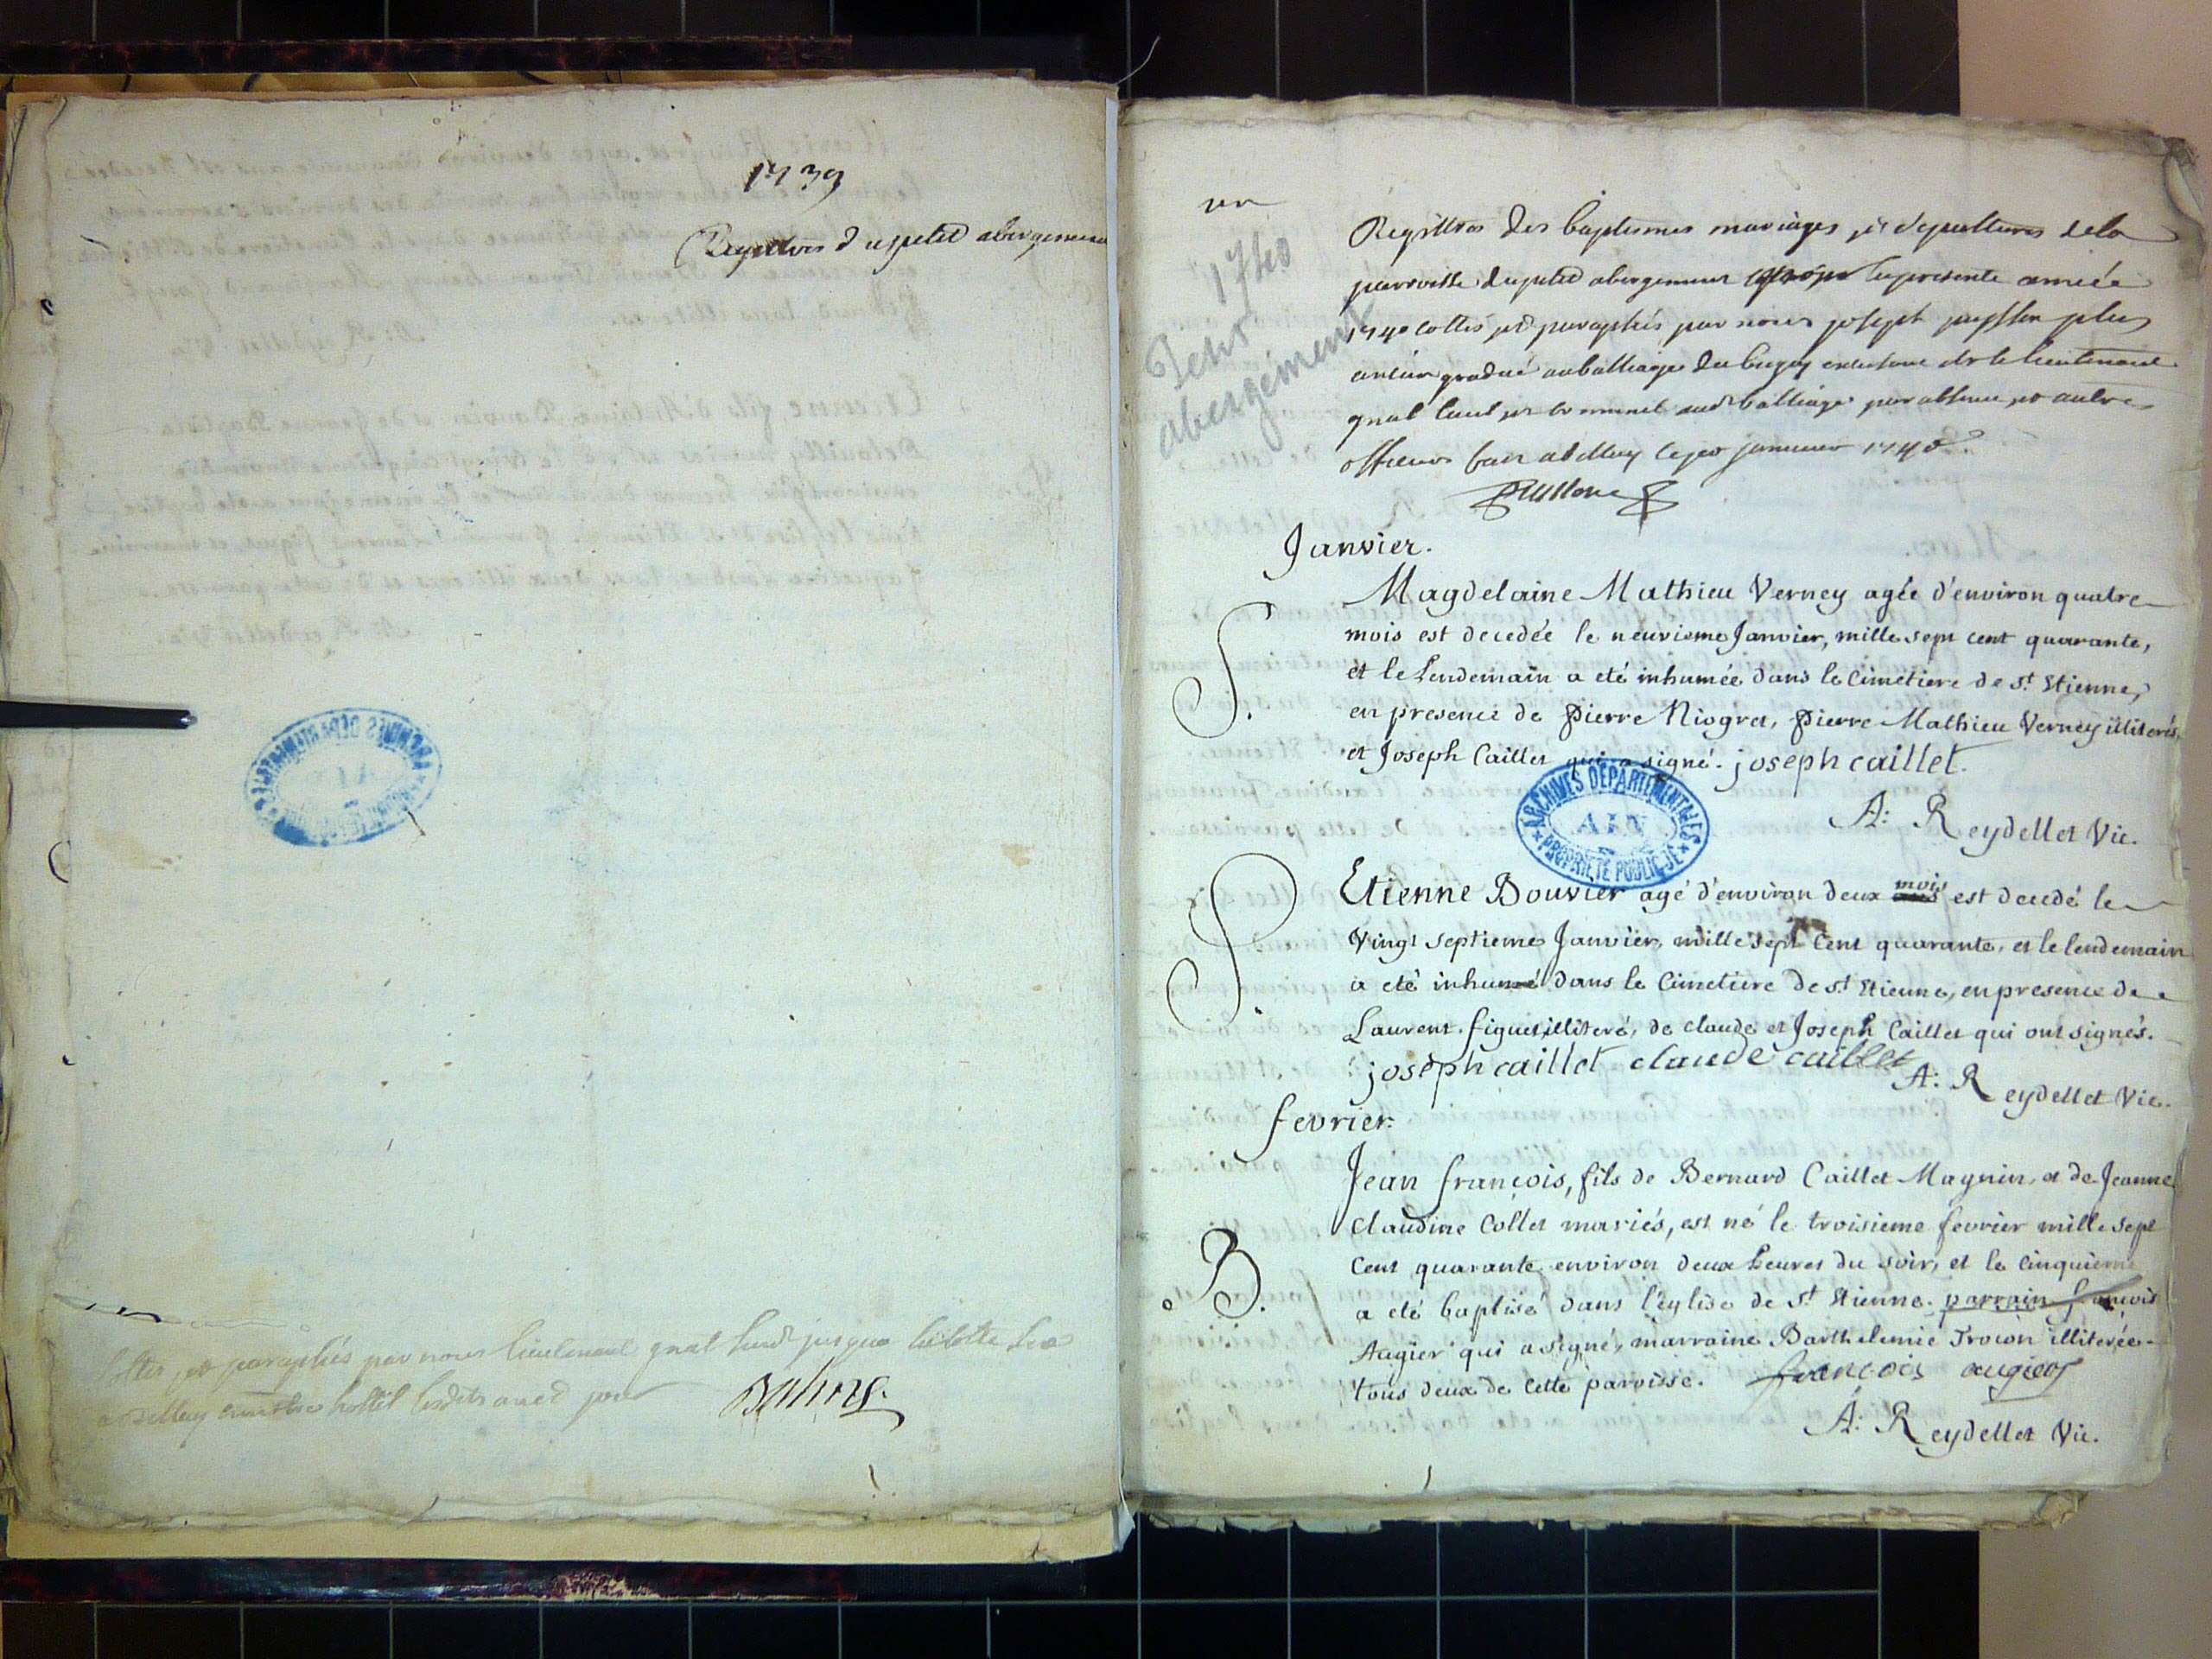 1739
Registres du petit abergement
Cottés et paraphés par nous lieutenant gnal
a Belley
un
1740
Petit
abergement
Registres des baptemes mariages et sepultures de la
parroisse du petit abergement la presente année
1740 cottés et paraphés par nous joseph plus
ancien gradué au balliage du bugey lieutenant
gnal balliage par absence autres
officiers fait a belley le janvier 1740
Janvier.
S.
Magdelaine Mathieu Verney agée d'environ quatre
mois est decedée le neuvieme Janvier, mille sept cent quarante,
et le Lendemain a eté inhumée dans le Cimetiere de st. Etienne,
en presence de Pierre Niogret, Pierre Mathieu Verney illiterés,
et Joseph Caillet qui a signé. joseph caillet.
A: Reydellet Vic.
ARCHIVES DEPARTEMENTALES
AIN
PROPRIETE PUBLIQUE
S.
Etienne Bouvier agé d'environ deux ans mois est decedé le
Vingt septieme Janvier, mille sept Cent quarante, et le lendemain
a eté inhumé dans le Cimetiere de st. Etienne, en presence de
Laurent figuet illiteré, de claude et Joseph Caillet qui ont signés.
joseph caillet claude caillet
A: Reydellet Vic.
fevrier.
B.
Jean françois, fils de Bernard Caillet Magnin, et de Jeanne
Claudine Collet mariés, est né le troisieme fevrier mille sept
Cent quarante environ deux heures du soir, et le Cinquieme
a eté baptisé dans l'église de st. Etienne. parrain françois
Augier qui a signé, marraine Barthelemie Trocon illiterée
tous deux de Cette paroisse. françois augier
A: Reydellet Vic.